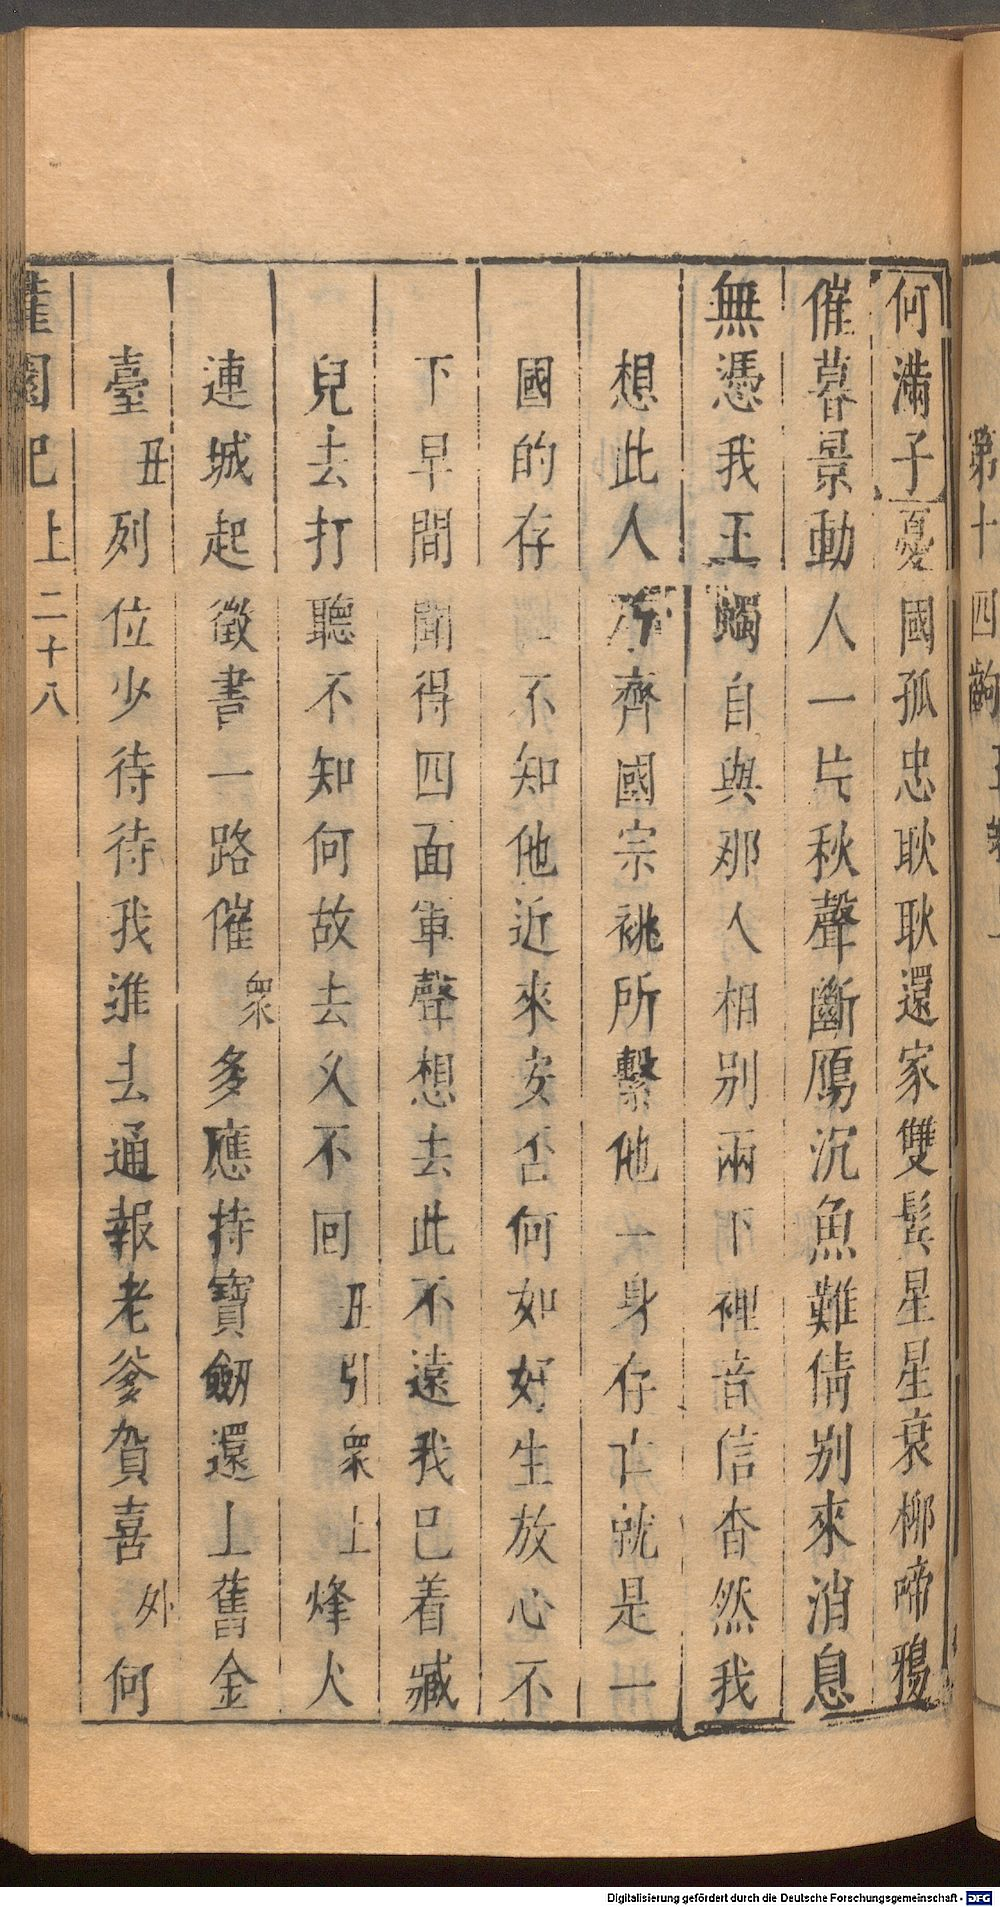 第十四齣
何滿子憂國孤忠耿耿還家雙鬂星星衰柳啼鴉
催暮景動人一片秋聲斷鴈沉魚難倩别來消息
無憑我王蠋自與那人相别兩下裡音信杳然我
想此人乃齊國宗祧所繫他一身存亡就是一
國的存亡不知他近來安否何如好生放心不
下早間聞得四面軍聲想去此不遠我已着臧
兒去打聽不知何故去乆不回丑引衆上烽火
連城起徵書一路催衆多應持寶劒還上舊金
臺丑列位少待待我進去通報老爹賀喜外何
灌園記上二十八
Digitalisierung gefördert durch die Deutsche Forschungsgemeinschaft - DFG